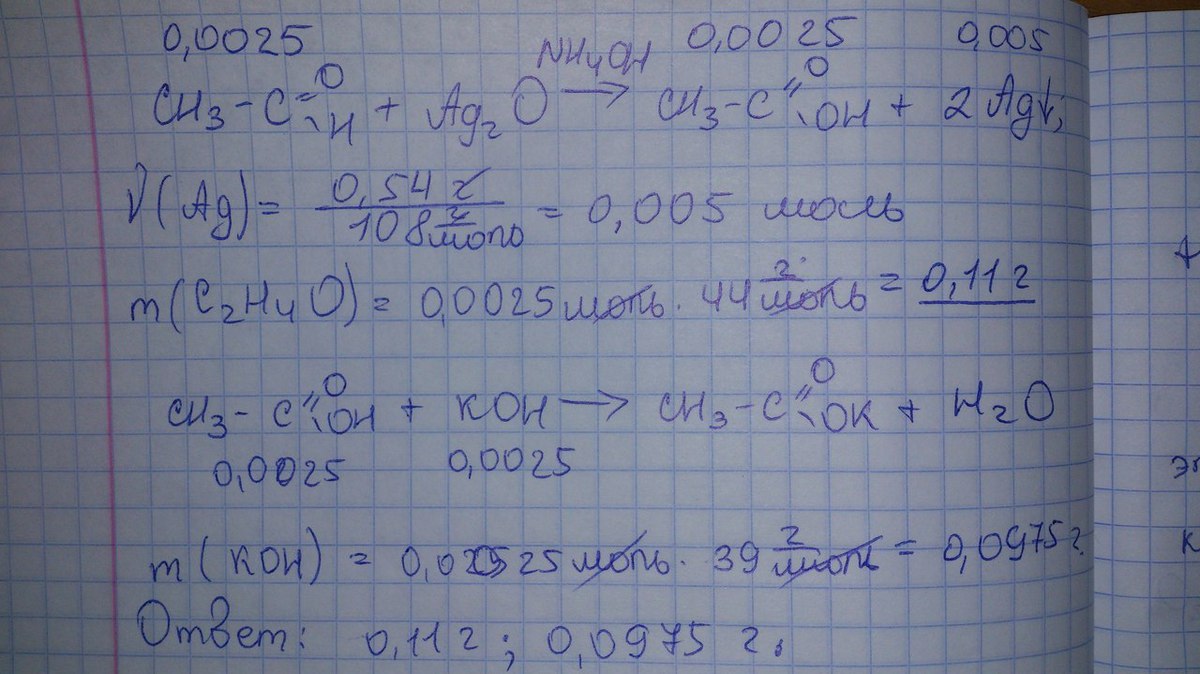 0,0025 0,0025 0,005
NH₄OH
O O
CH₃-C=\H + Ag₂O → CH₃-C=\OH + 2Ag↓;
ν(Ag) = 0,54 г / 108 г/моль = 0,005 моль
m(C₂H₄O) = 0,0025 моль · 44 г/моль = 0,11 г
O O
CH₃-C=\OH + KOH → CH₃-C=\OK + H₂O
0,0025 0,0025
m(KOH) = 0,0025 моль · 39 г/моль = 0,0975 г.
Ответ: 0,11 г; 0,0975 г.